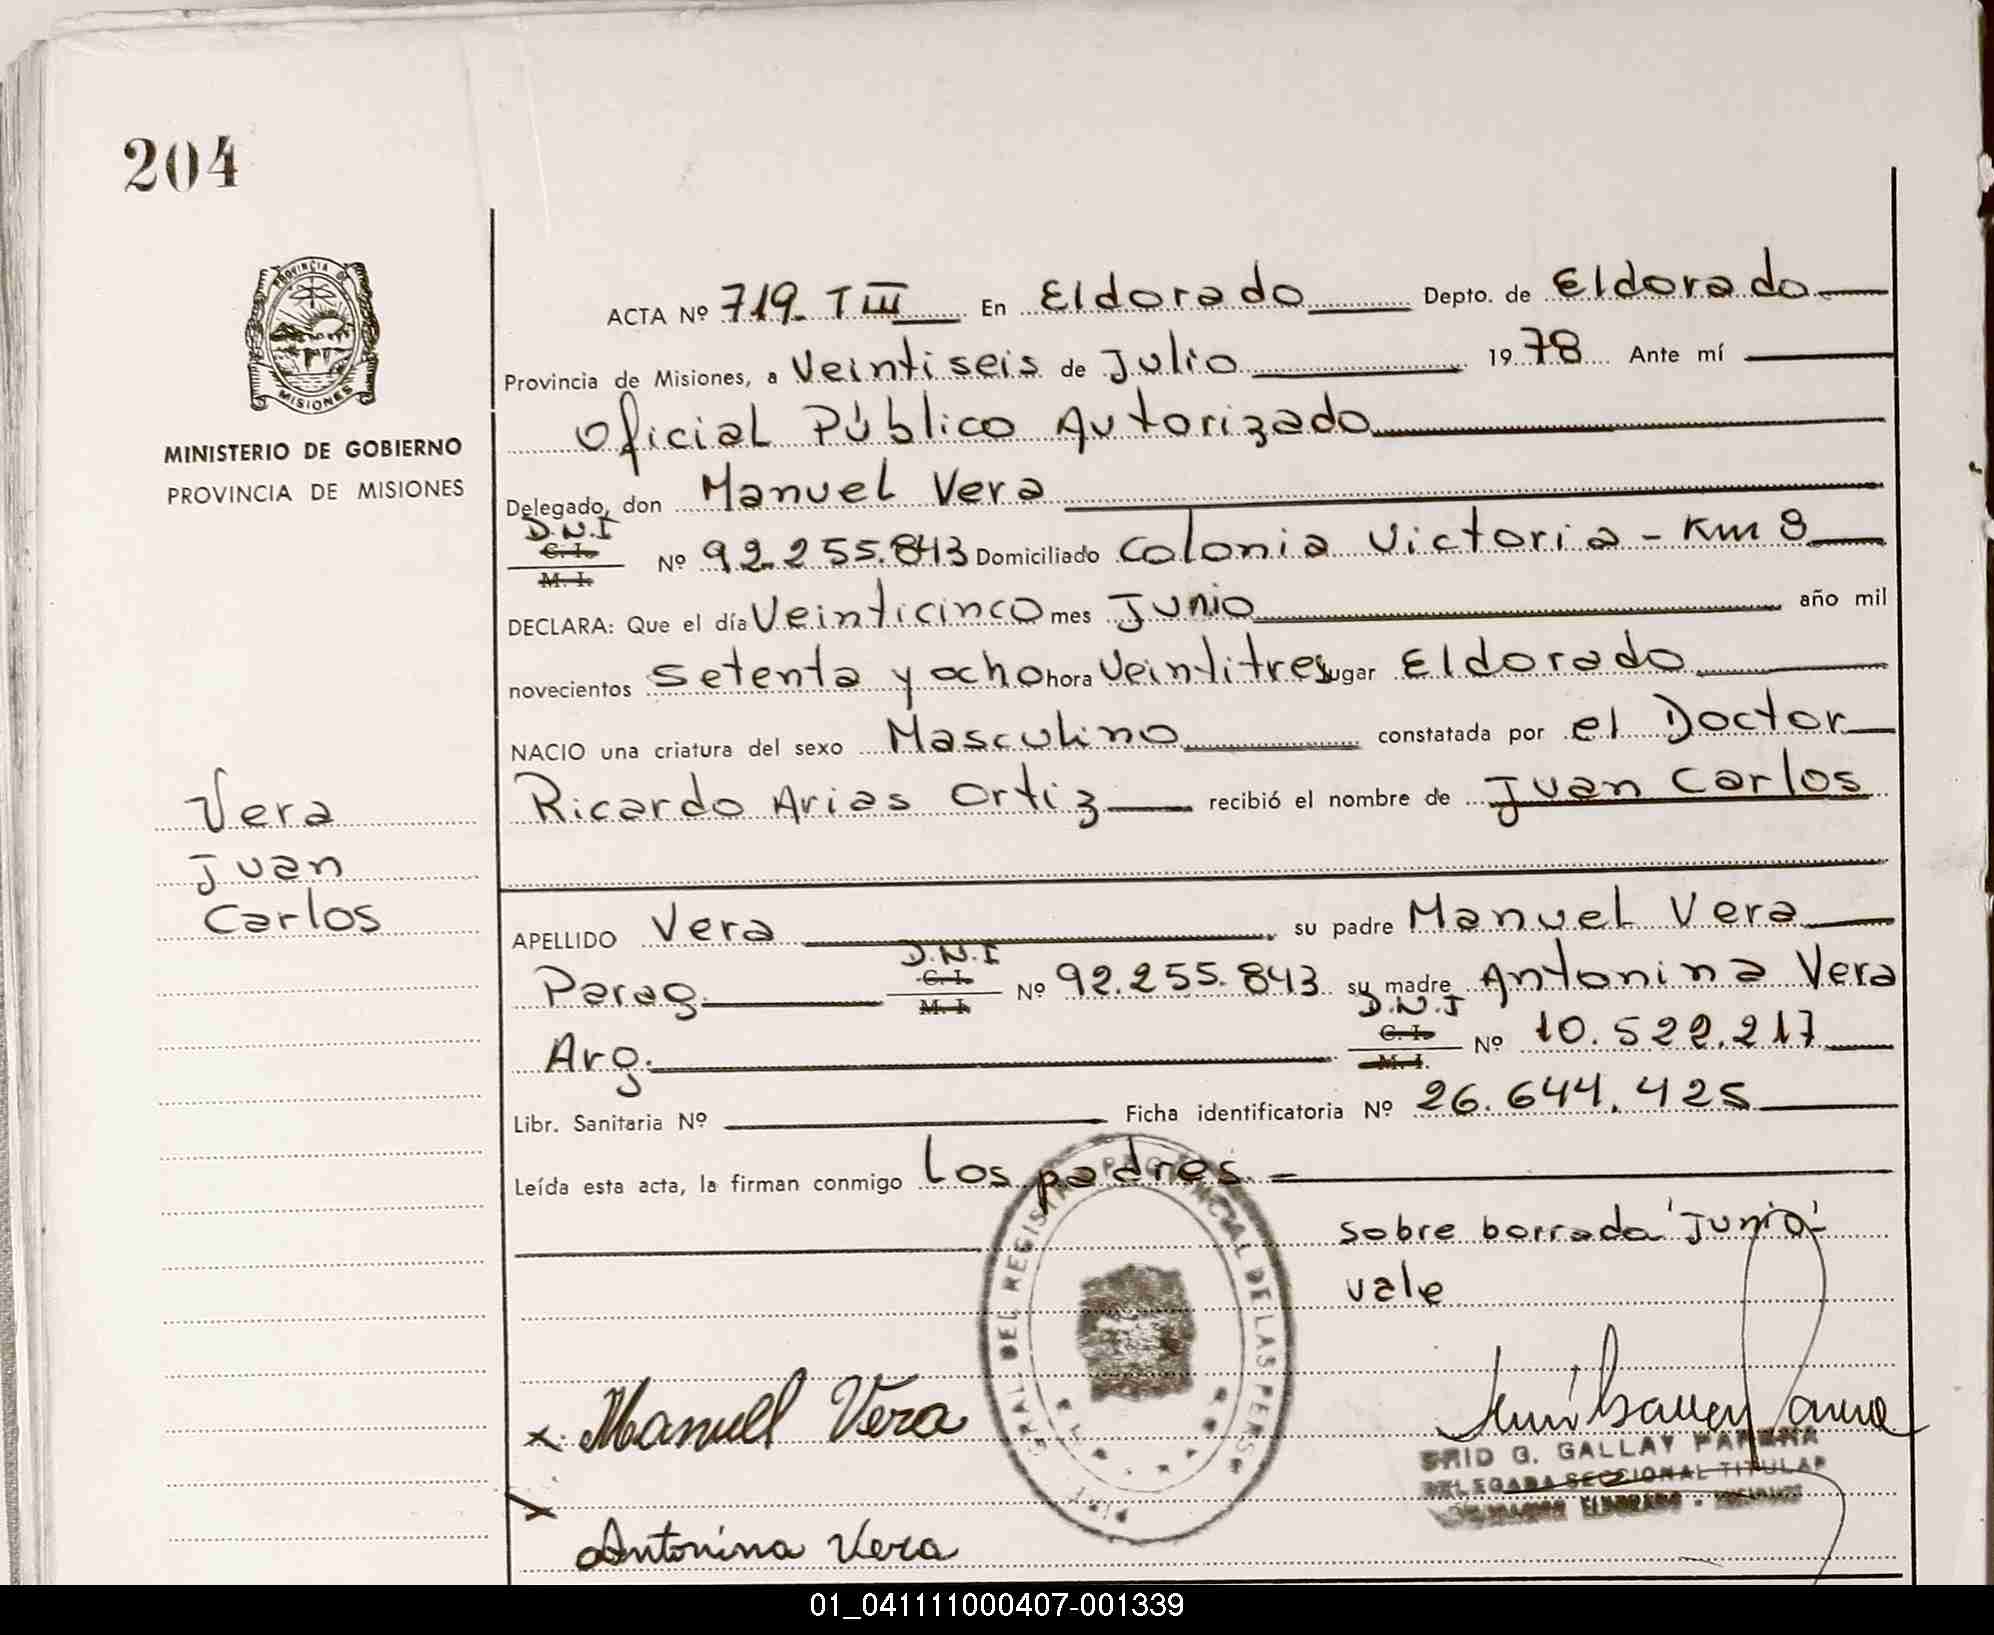 204
PROVINCIA DE
MISIONES
MINISTERIO DE GOBIERNO
PROVINCIA DE MISIONES
ACTA Nº 719 T III En Eldorado Depto. de Eldorado
Provincia de Misiones, a Veintiseis de Julio 1978 Ante mí
Oficial Público Autorizado
Delegado, don Manuel Vera
D.N.I
C. I.
M. I.
Nº 92.255.843 Domiciliado Colonia Victoria - Km 8
DECLARA: Que el día Veinticinco mes Junio año mil
novecientos setenta y ocho hora Veintitres lugar Eldorado
NACIO una criatura del sexo Masculino constatada por el Doctor
Ricardo Arias Ortiz recibió el nombre de Juan Carlos
Vera
Juan
Carlos
APELLIDO Vera su padre Manuel Vera
Parag. D.N.I C. I. M. I. Nº 92.255.843 su madre Antonina Vera
Arg. D.N.I C. I. M. I. Nº 10.522.217
Libr. Sanitaria Nº Ficha identificatoria Nº 26.644.425
Leída esta acta, la firman conmigo los padres.-
sobre borrada 'Junio'
vale
GRAL. DEL REGISTRO PROVINCIAL DE LAS PERS
x Manuel Vera
G. GALLAY
DELEGADA SECCIONAL TITULAR
ELDORADO - MISIONES
x
Antonina Vera
01_041111000407-001339